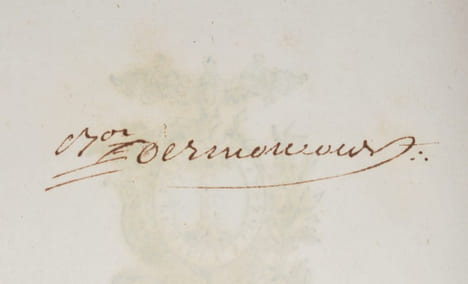 Bon Dermoncourt